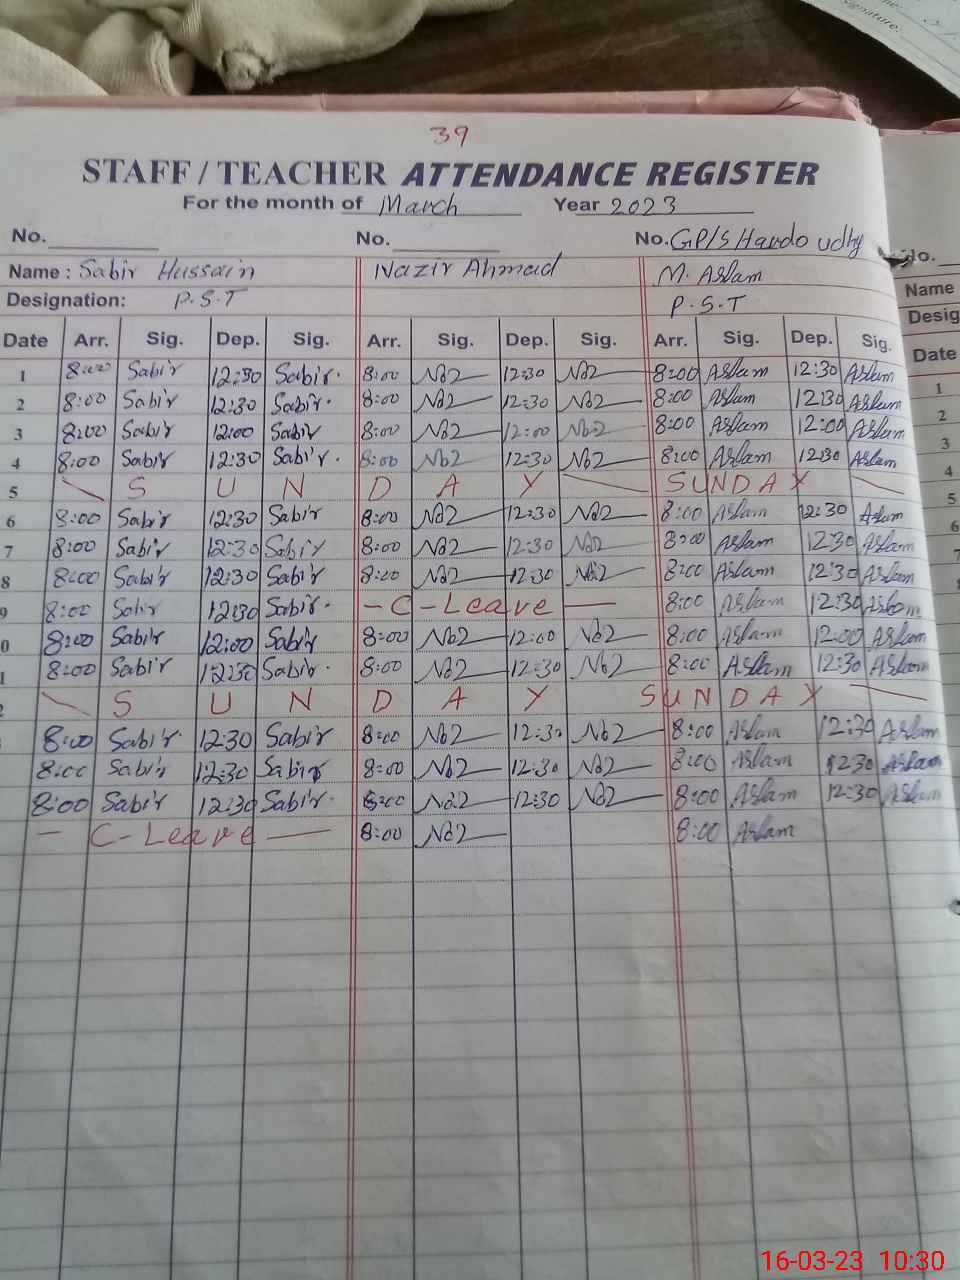 39
STAFF / TEACHER ATTENDANCE REGISTER
For the month of March Year 2023
No. No. No. GP/S Hardo udhy
Name : Sabir Hussain Nazir Ahmad M. Aslam
Designation: P.S.T P.S.T
Date Arr. Sig. Dep. Sig. Arr. Sig. Dep. Sig. Arr. Sig. Dep. Sig.
1 8:00 Sabir 12:30 Sabir. 8:00 12:30 8:00 Aslam 12:30 Aslam
2 8:00 Sabir 12:30 Sabir. 8:00 12:30 8:00 Aslam 12:30 Aslam
3 8:00 Sabir 12:00 Sabir 8:00 12:00 8:00 Aslam 12:00 Aslam
4 8:00 Sabir 12:30 Sabir. 8:00 12:30 8:00 Aslam 12:30 Aslam
5 S U N D A Y SUNDAY
6 8:00 Sabir 12:30 Sabir 8:00 12:30 8:00 Aslam 12:30 Aslam
7 8:00 Sabir 12:30 Sabir 8:00 12:30 8:00 Aslam 12:30 Aslam
8 8:00 Sabir 12:30 Sabir 8:00 12:30 8:00 Aslam 12:30 Aslam
9 8:00 Sabir 12:30 Sabir. - C - Leave - 8:00 Aslam 12:30 Aslam
0 8:00 Sabir 12:00 Sabir 8:00 12:00 8:00 Aslam 12:00 Aslam
1 8:00 Sabir 12:30 Sabir. 8:00 12:30 8:00 Aslam 12:30 Aslam
2 S U N D A Y SUNDAY
8:00 Sabir. 12:30 Sabir 8:00 12:30 8:00 Aslam 12:30 Aslam
8:00 Sabir 12:30 Sabir 8:00 12:30 8:00 Aslam 12:30 Aslam
8:00 Sabir 12:30 Sabir. 8:00 12:30 8:00 Aslam 12:30 Aslam
- C - Leave - 8:00 8:00 Aslam
No.
Name
Desig
Date
1
2
3
4
5
6
7
16-03-23 10:30